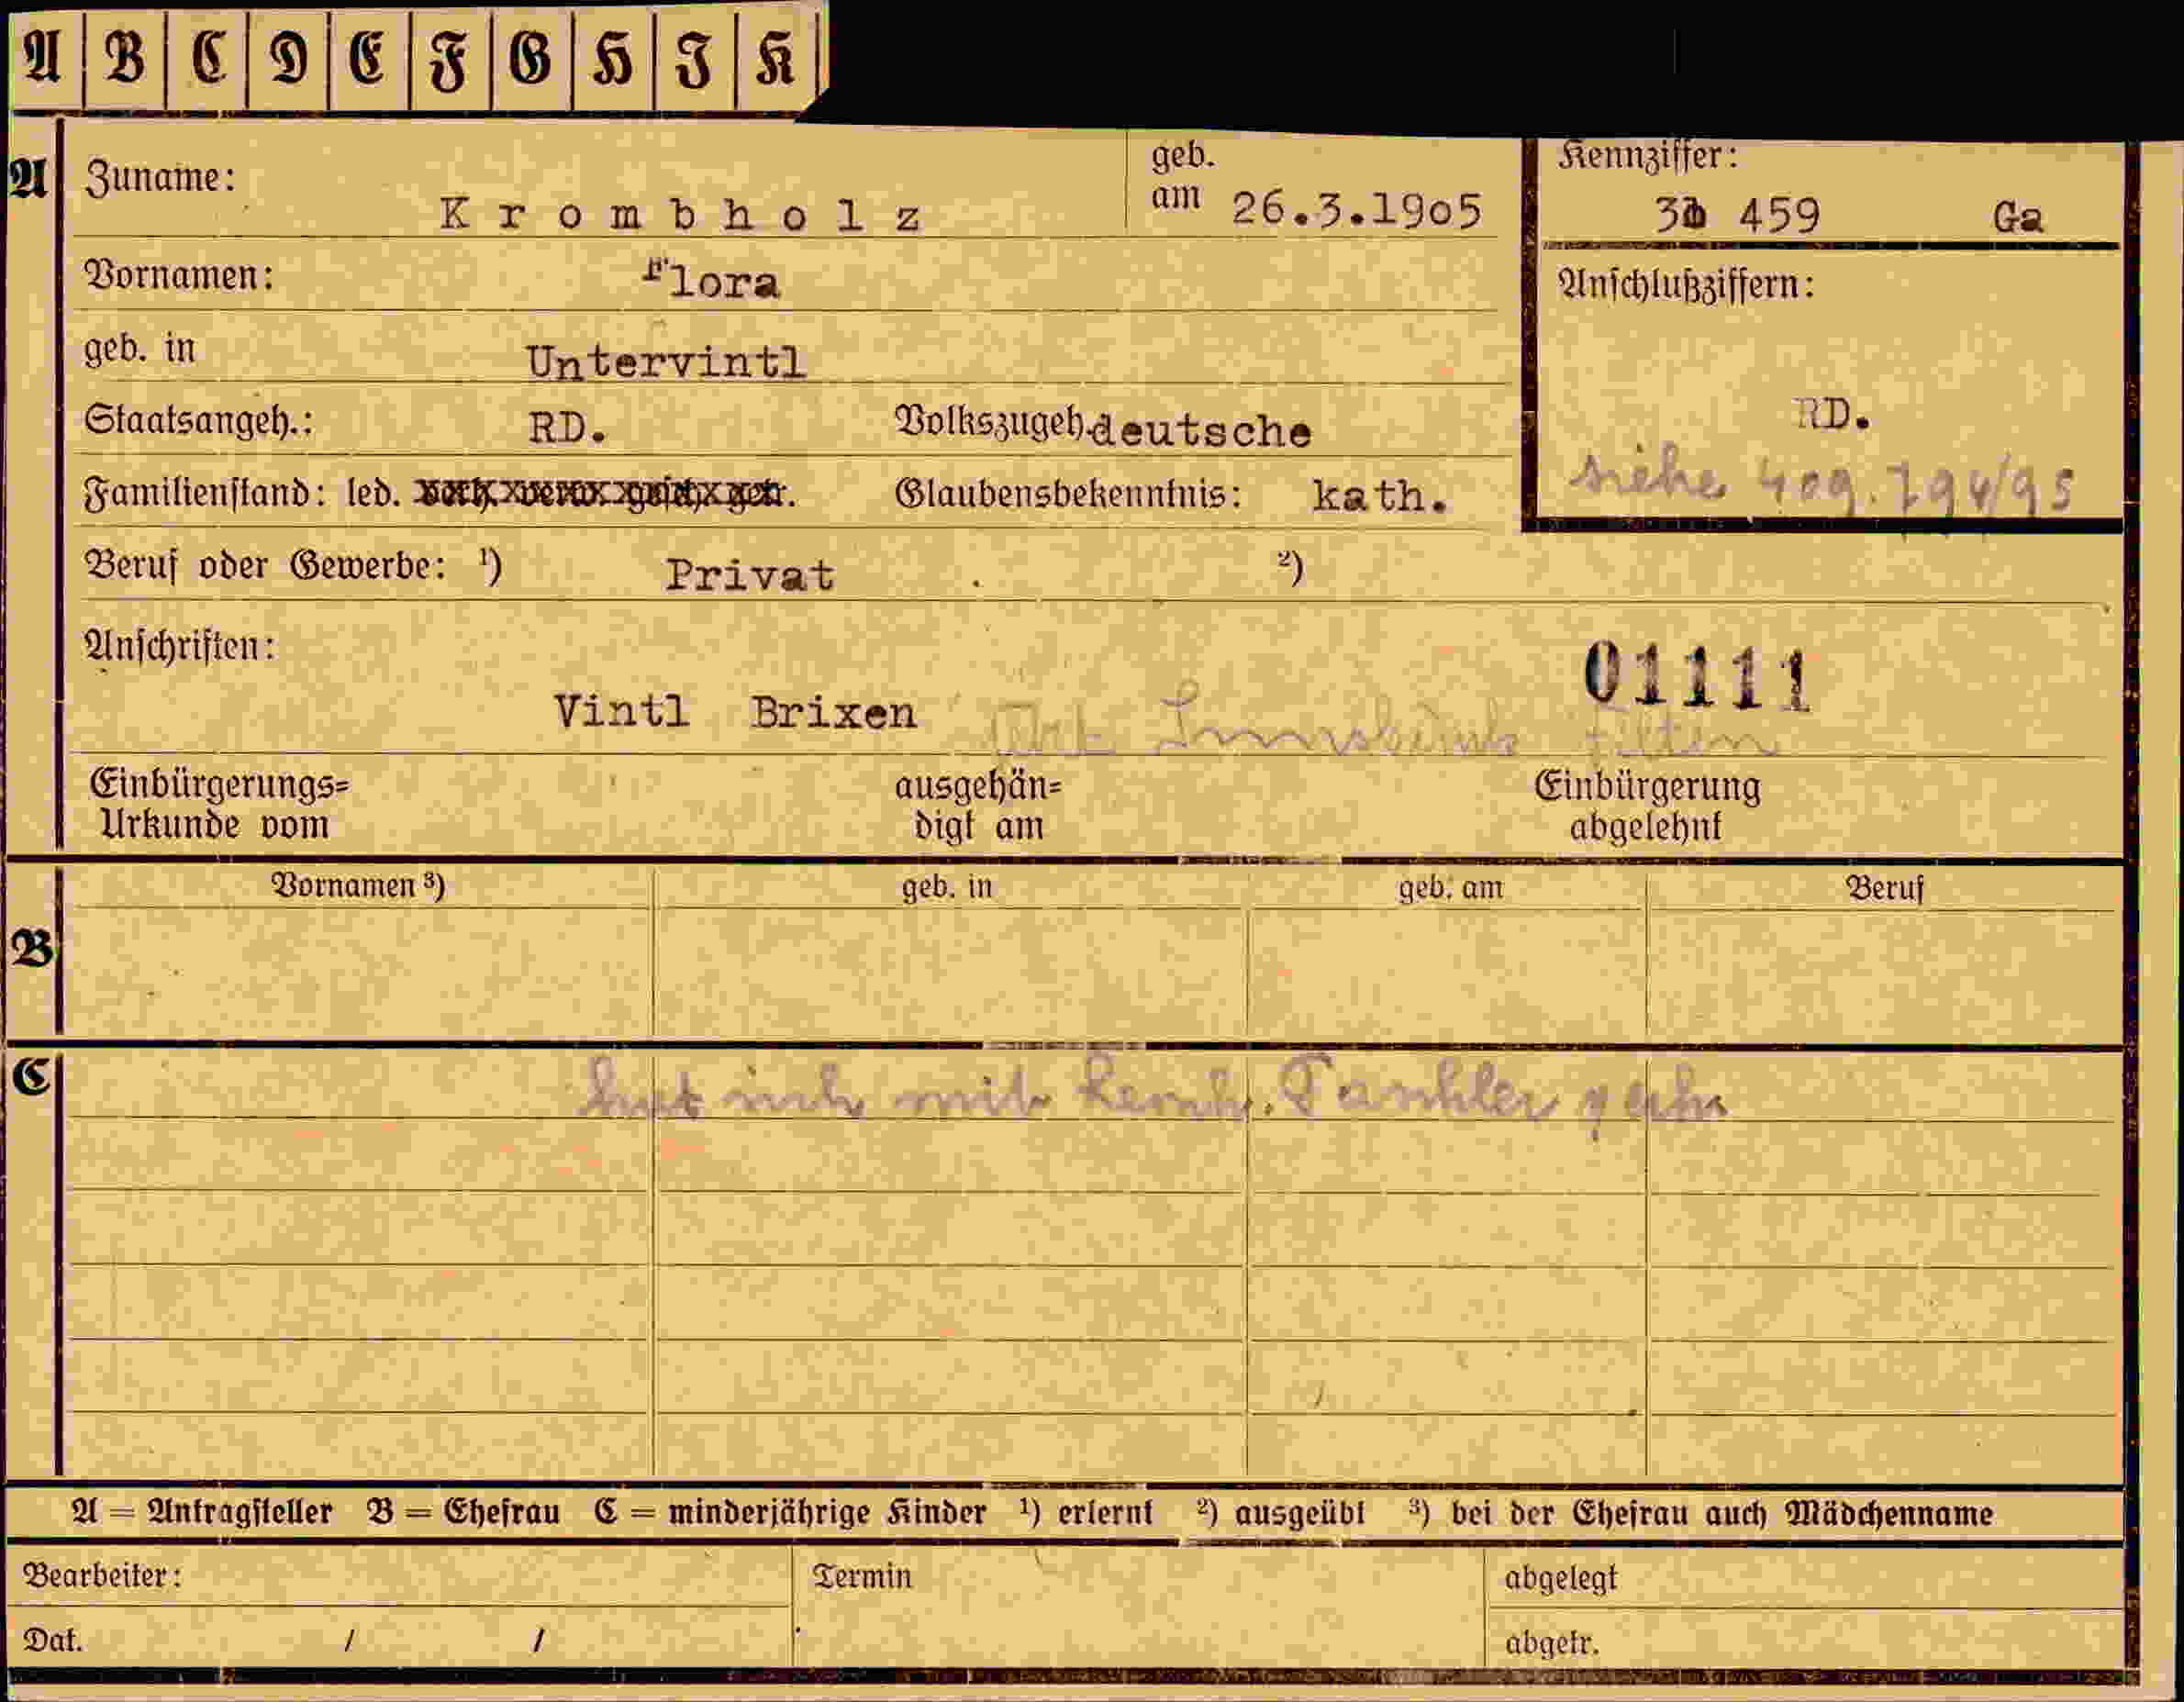 A B C D E F G H I K
A Zuname: Krombholz geb. am 26.3.1905 Kennziffer: 459 Ga
Vornamen: Flora Anschlußziffern:
geb. in Untervintl
Staatsangeh.: RD. Volkszugeh. deutsche RD.
siehe 409.794/95
Familienstand: led. Glaubensbekenntnis: kath.
Beruf oder Gewerbe: ¹) Privat ²)
Anschriften: 01111
Vintl Brixen
Einbürgerungs= ausgehän= Einbürgerung
Urkunde vom digt am abgelehnt
Vornamen ³) geb. in geb. am Beruf
B
C hat sich mit Taschler
A = Antragsteller B = Ehefrau C = minderjährige Kinder ¹) erlernt ²) ausgeübt ³) bei der Ehefrau auch Mädchenname
Bearbeiter: Termin abgelegt
Dat. / / abgetr.